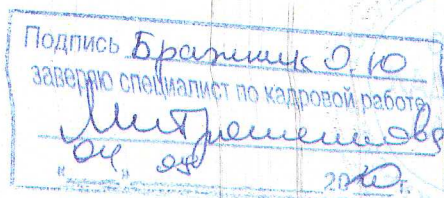 Подпись Бражник О.Ю
заверяю специалист по кадровой работе
Митрошенкова
"04" 20 г.